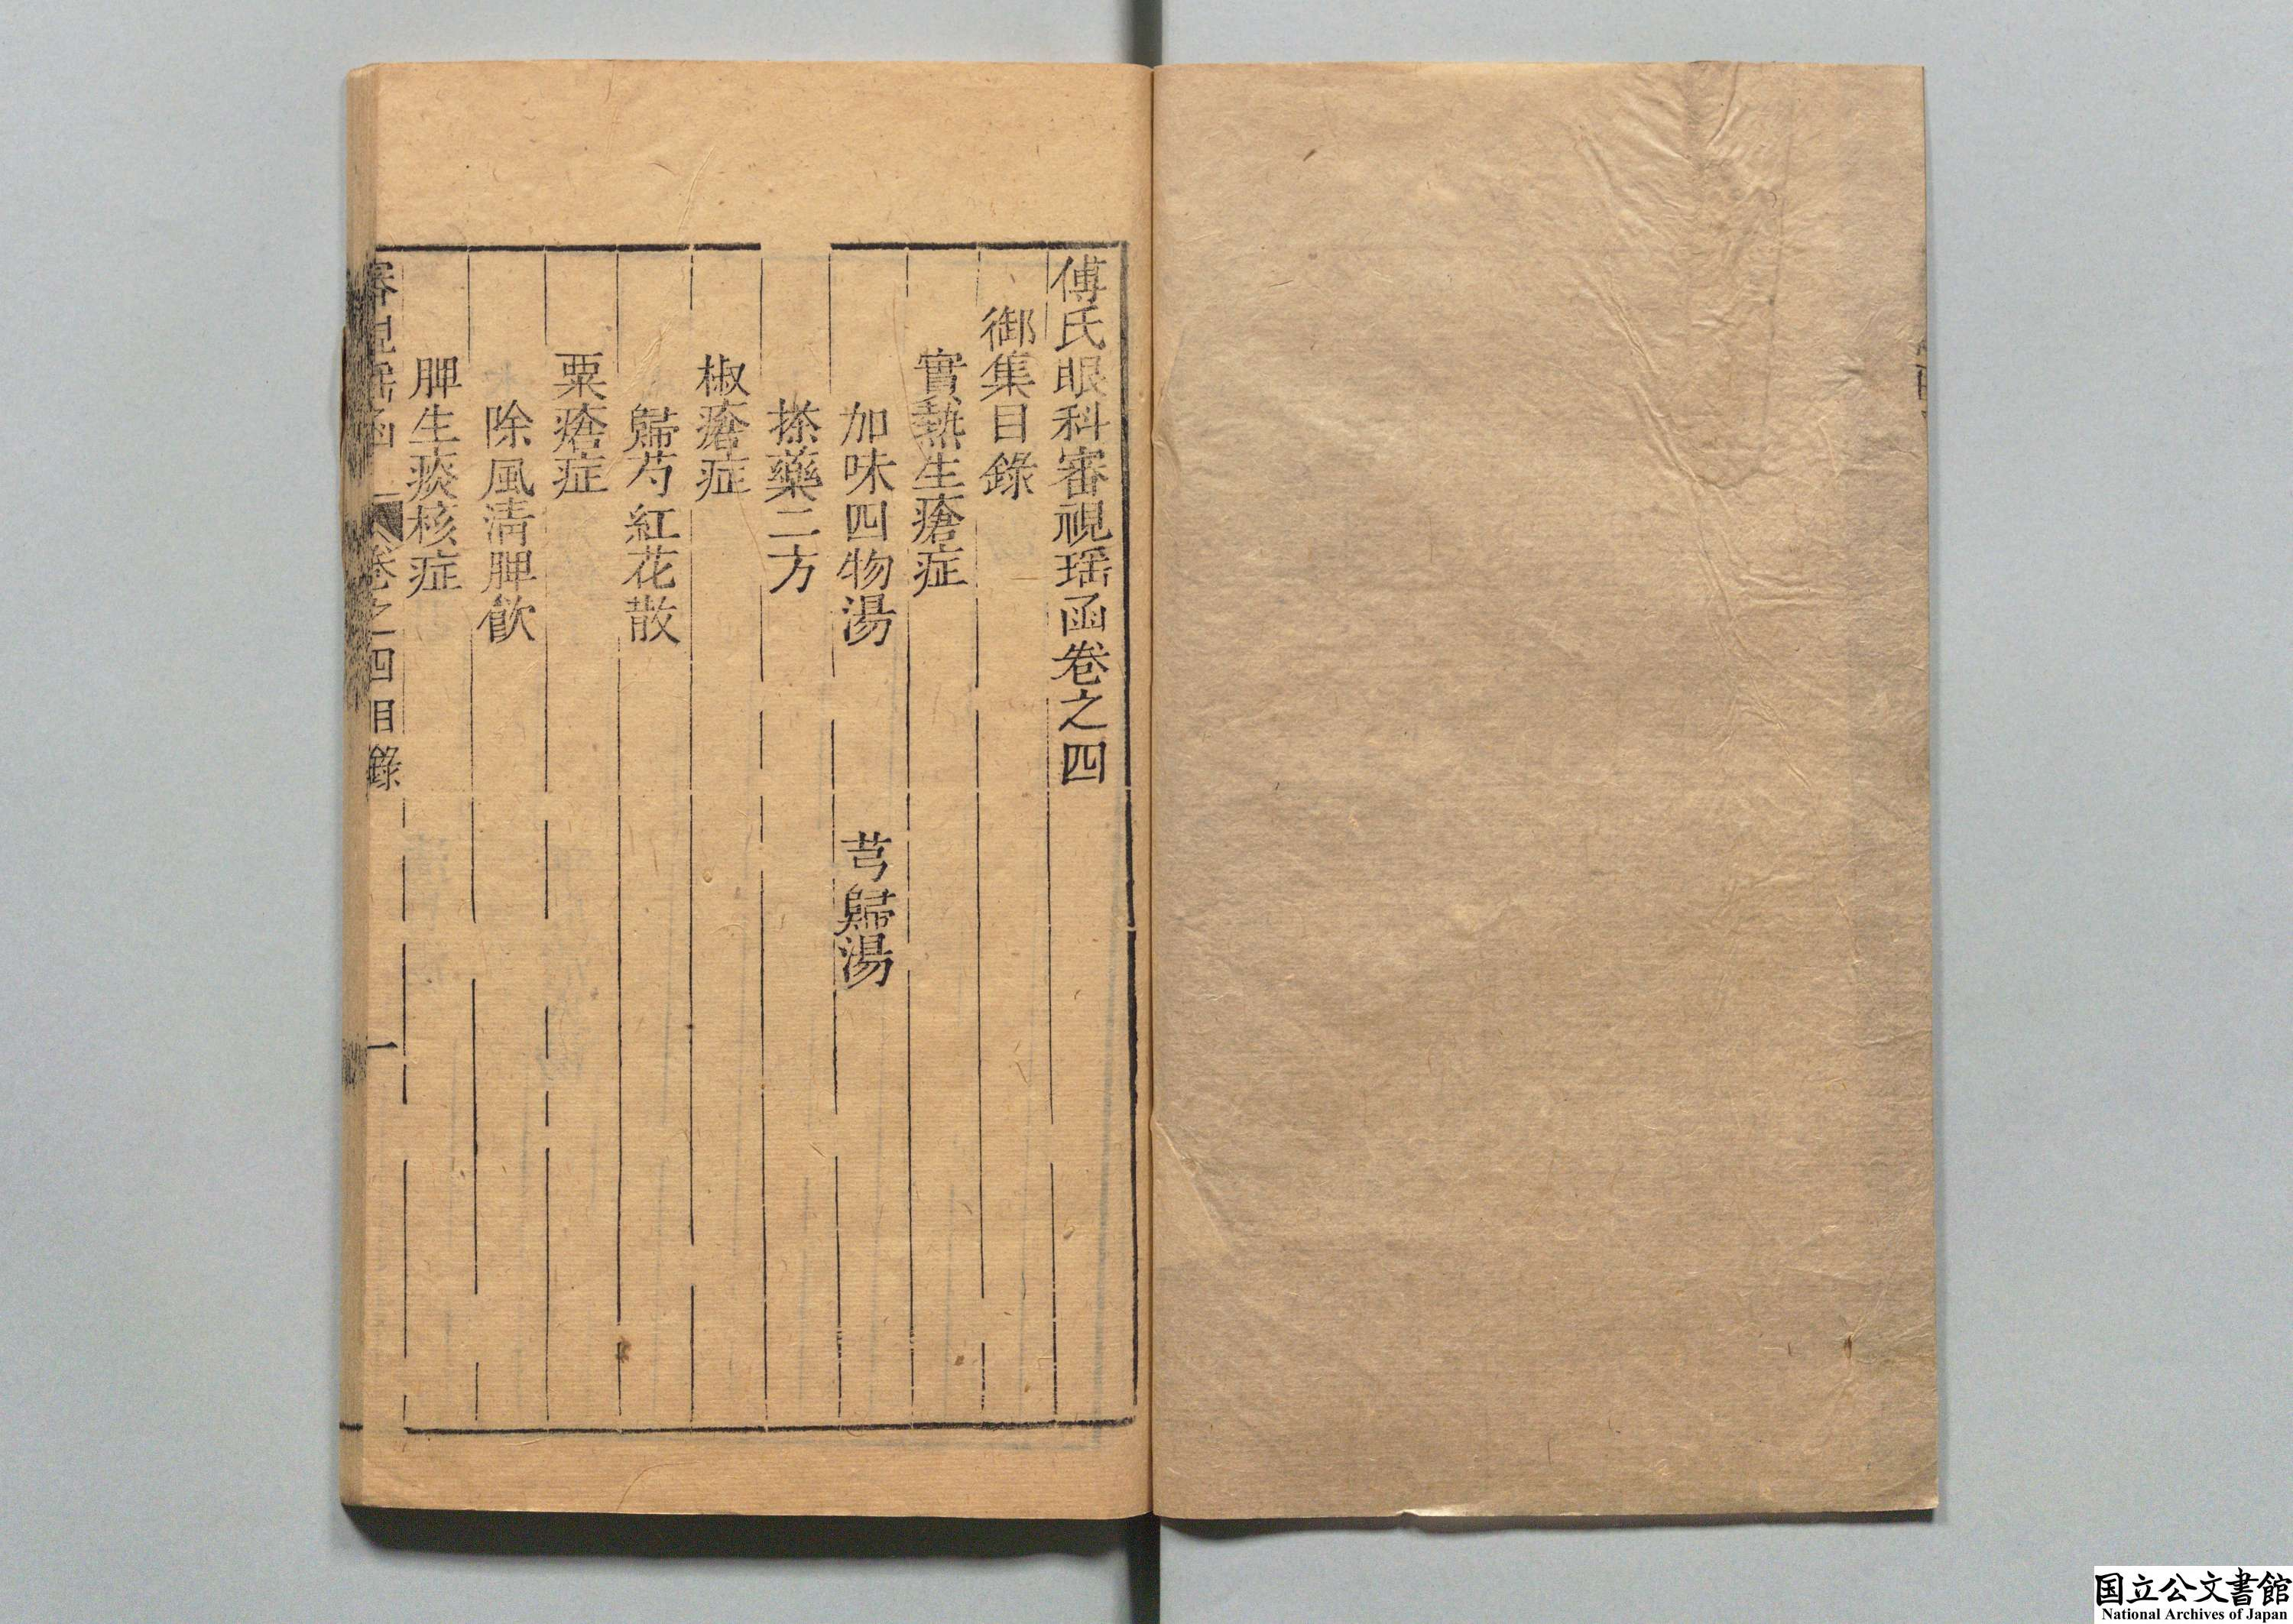 傅氏眼科審視瑶函卷之四
御集目錄
實熱生瘡症
加味四物湯　芎歸湯
搽藥二方
椒瘡症
歸芍紅花散
粟瘡症
除風清脾飮
脾生痰核症
審視瑶函　卷之四目錄　一
国立公文書館
National Archives of Japan